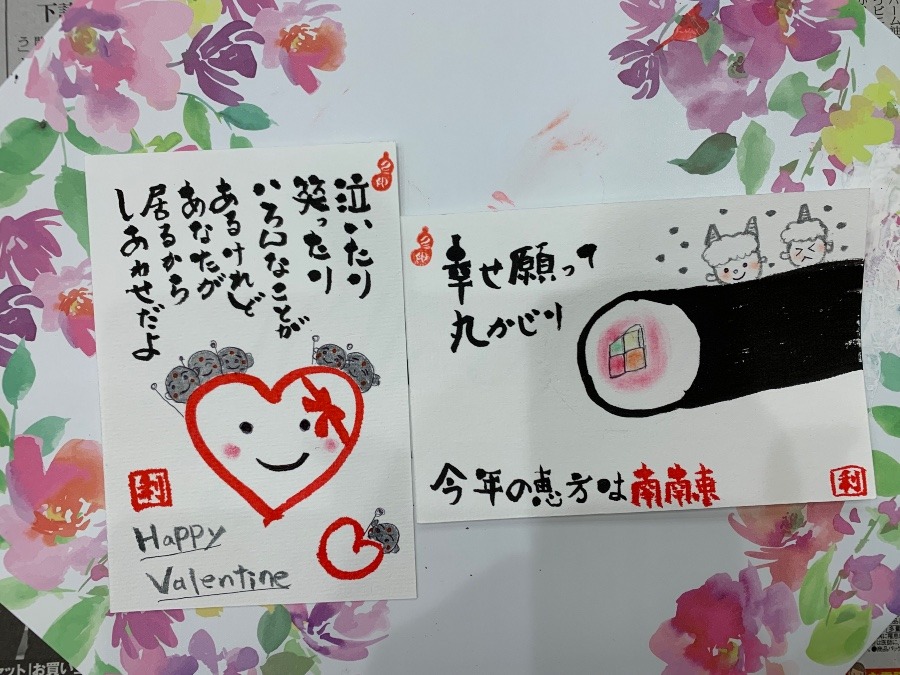 泣いたり
笑ったり
いろんなことが
あるけれど
あなたが
居るから
しあわせだよ
利
Happy
Valentine
幸せ願って
丸かじり
今年の恵方は南南東
利